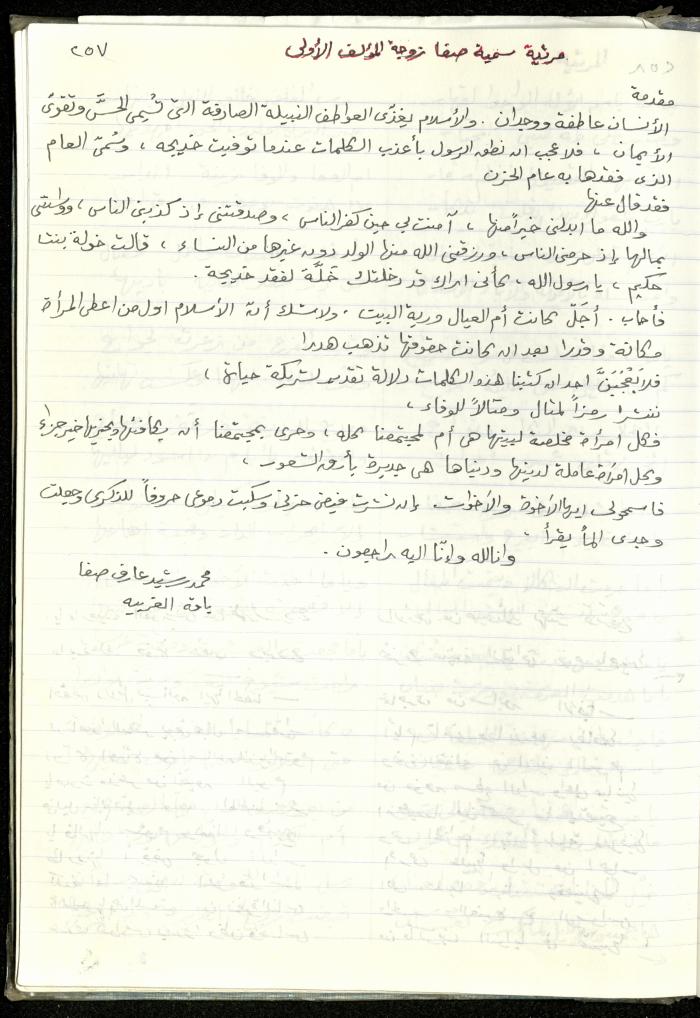 ٢٥٧
مرثية سمية صفا زوجة المؤلف الأولى
مقدمة
الأنسان عاطفة ووجدان . والأسلام يغذّى العواطف النبيلة الصادقة التى تسمى الحسّ وتقوى
الأيمان ، فلا عجب ان نطق الرسول بأعذب الكلمات عندما توفيت خديجه ، وسُمىّ العام
الذى فقدها به عام الحزن
فقد قال عنها
والله ما ابدلنى خيراً منها ، آمنت بي حين كفر الناس ، وصدقتنى إذ كذبنى الناس ، وواستنى
بمالها إذ حرمنى الناس ، ورزقنى الله منها الولد دون غيرها من النساء ، قالت خولة بنت
حكيم ، يا رسول الله ، كأنى اراك قد دخلتك خَلَّة لفقد خديجة .
فأجاب . أجَلْ كانت أم العيال وربة البيت . ولا شك أنّ الأسلام اول من اعطى المرأة
مكانة وقدرا بعد ان كانت حقوقها تذهب هدرا
فلا يَعْجَبَنَّ احد ان كتبنا هذه الكلمات دلالة تقدير لشريكة حياة ،
ننشرا رمزاً لمثال ومثالاً للوفاء ،
فكل امرأة مخلصة لبيتها هى أم لمجتمعنا كله ، وحرى بمجتمعنا أن يكافئها ويجزيها خير جزاء
وكل امرأة عاملة لدينها ودنياها هى جديرة بأرق الشعور ،
فاسمحولى ايها الأخوة والأخوات . إن نشرت فيض حزنى وسكبت دموعى حروفاً للذكرى وجعلت
وجدى الملأ يقرأ .
وانا لله وإنّا اليه راجعون .
محمد رشيد عارف صفا
باقة الغربيه